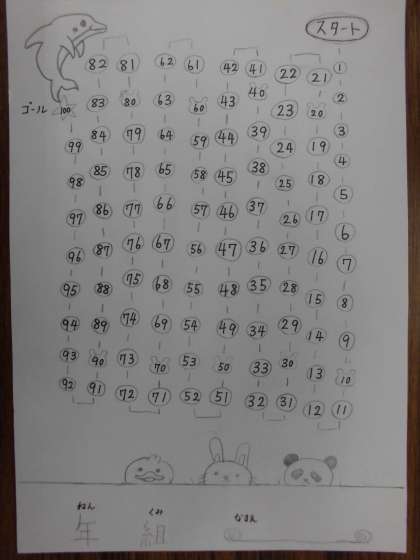 スタート
82 81 62 61 42 41 22 21 1
ゴール 100 83 80 63 60 43 40 23 20 2
99 84 79 64 59 44 39 24 19 3
98 85 78 65 58 45 38 25 18 4
97 86 77 66 57 46 37 26 17 5
96 87 76 67 56 47 36 27 16 6
95 88 75 68 55 48 35 28 15 7
94 89 74 69 54 49 34 29 14 8
93 90 73 70 53 50 33 30 13 9
92 91 72 71 52 51 32 31 12 10
11
ねん くみ なまえ
年 組